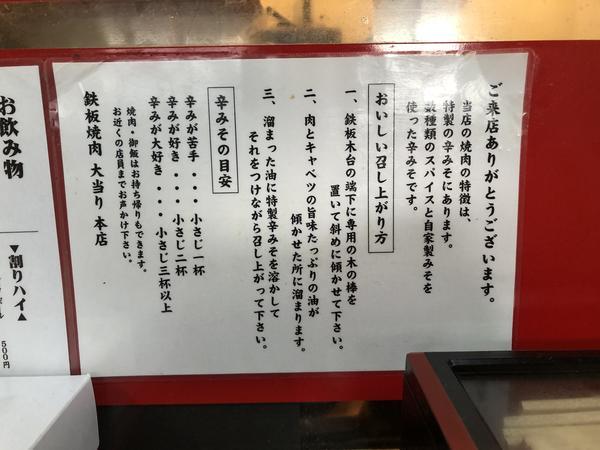 ご来店ありがとうございます。
当店の焼肉の特徴は、
特製の辛みそにあります。
数種類のスパイスと自家製みそを
使った辛みそです。
おいしい召し上がり方
一、鉄板木台の端下に専用の木の棒を
置いて斜めに傾かせて下さい。
二、肉とキャベツの旨味たっぷりの油が
傾かせた所に溜まります。
三、溜まった油に特製辛みそを溶かして
それをつけながら召し上がって下さい。
辛みその目安
辛みが苦手・・・小さじ一杯
辛みが好き・・・小さじ二杯
辛みが大好き・・・小さじ三杯以上
焼肉・御飯はお持ち帰りもできます。
お近くの店員までお声かけ下さい。
鉄板焼肉 大当り 本店
お飲み物
▼割りハイ▲
500円